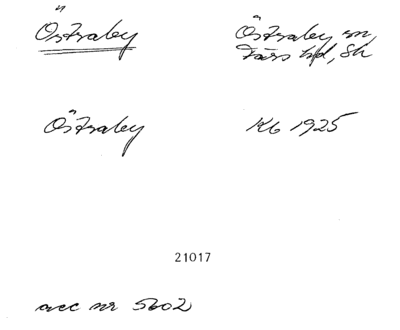 Östraby
Östraby sn,
Färs hd, Sk
Östraby
Kb 1925
21017
acc nr 5602